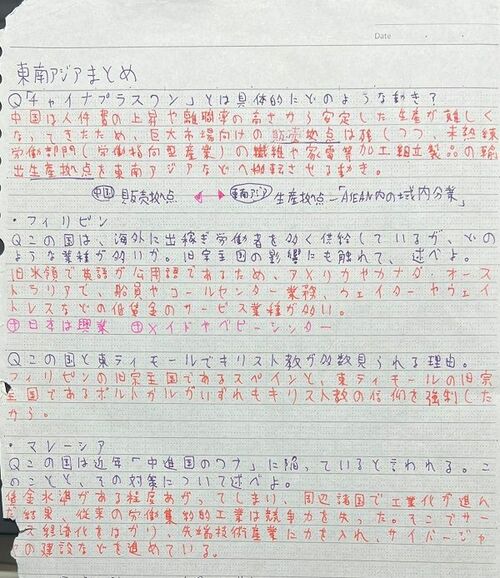 Date
東南アジアまとめ
Q「チャイナプラスワン」とは具体的にどのような動き?
中国は人件費の上昇や離職率の高さから安定した生産が難しく
なってきたため、巨大市場向けの販売拠点は残しつつ、未熟練
労働部門(労働指向型産業)の繊維や家電等加工組立製品の輸
出生産拠点を東南アジアなどへ移転させる動き。
中国 販売拠点 ↔ 東南アジア 生産拠点-「ASEAN内の域内分業」
・フィリピン
Qこの国は、海外に出稼ぎ労働者を多く供給しているが、どの
ような業種が多いか。旧宗主国の影響にも触れて、述べよ。
旧米領で英語が公用語であるため、アメリカやカナダ・オース
トラリアで、船員やコールセンター業務、ウェイターやウェイ
トレスなどの低賃金のサービス業種が多い。
日本は興業 メイドやベビーシッター
Qこの国と東ティモールでキリスト教が多数見られる理由。
フィリピンの旧宗主国であるスペインと、東ティモールの旧宗
主国であるポルトガルがいずれもキリスト教の信仰を強制した
から。
・マレーシア
Qこの国は近年「中進国のワナ」に陥っていると言われる。こ
のことと、その対策について述べよ。
賃金水準がある程度あがってしまい、周辺諸国で工業化が進ん
だ結果、従来の労働集約的工業は競争力を失った。そこでサー
ビス経済化をはかり、先端技術産業に力を入れ、サイバージャ
ヤの建設などを進めている。